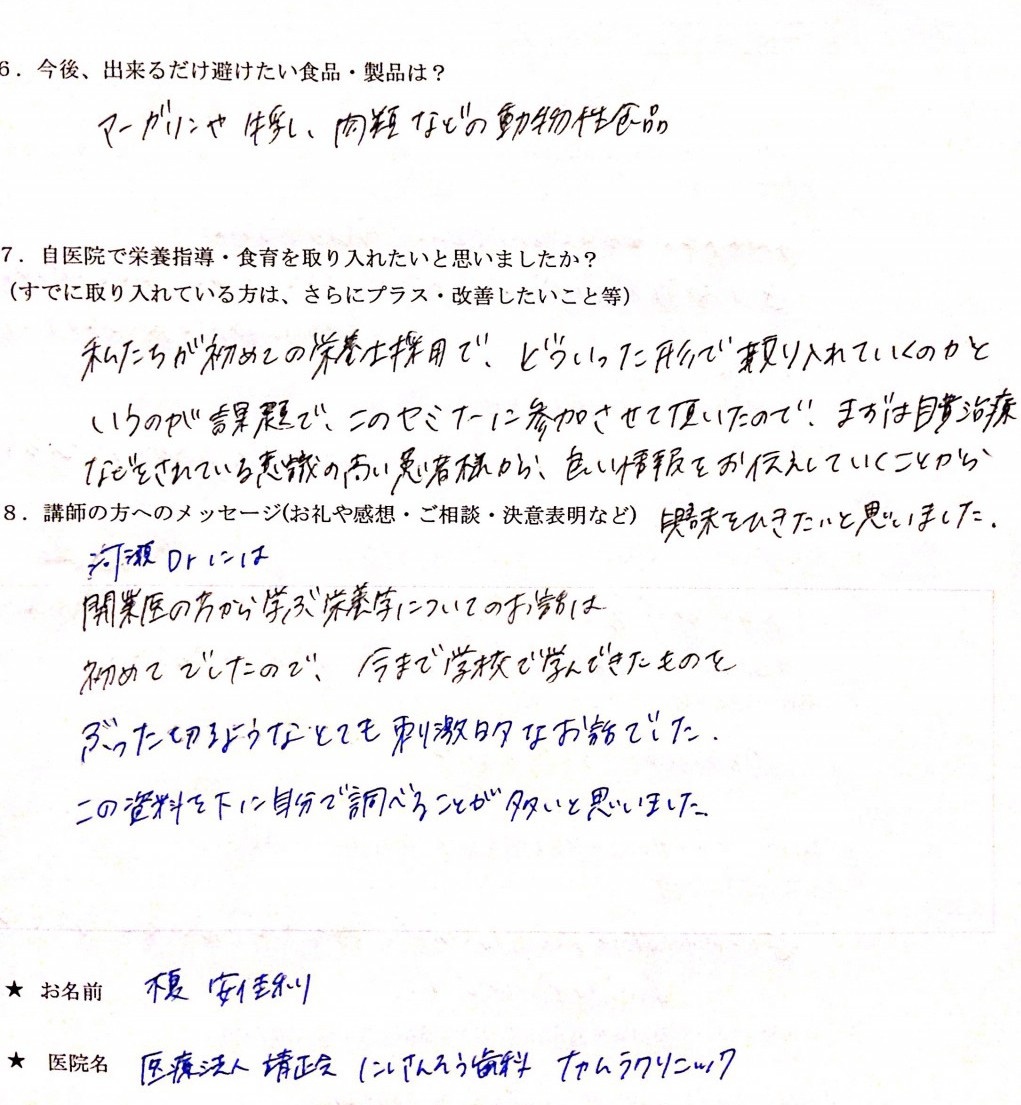 6．今後、出来るだけ避けたい食品・製品は？
マーガリンや牛乳、肉類などの動物性食品
7．自医院で栄養指導・食育を取り入れたいと思いましたか？
（すでに取り入れている方は、さらにプラス・改善したいこと等）
私たちが初めての栄養士採用で、どういった形で取り入れていくのかと
いうのが課題で、このセミナーに参加させて頂いたので、まずは自費治療
などをされている意識の高い患者様から、良い情報をお伝えしていくことから
8．講師の方へのメッセージ(お礼や感想・ご相談・決意表明など)
興味をひきたいと思いました。
河瀬Drには
開業医の方から学ぶ栄養学についてのお話は
初めてでしたので、今まで学校で学んできたものを
ぶった切るようなとても刺激的なお話でした。
この資料を下に自分で調べることが多いと思いました。
★ お名前 榎 安佳利
★ 医院名 医療法人 靖正会 にしさんそう歯科 ナカムラクリニック